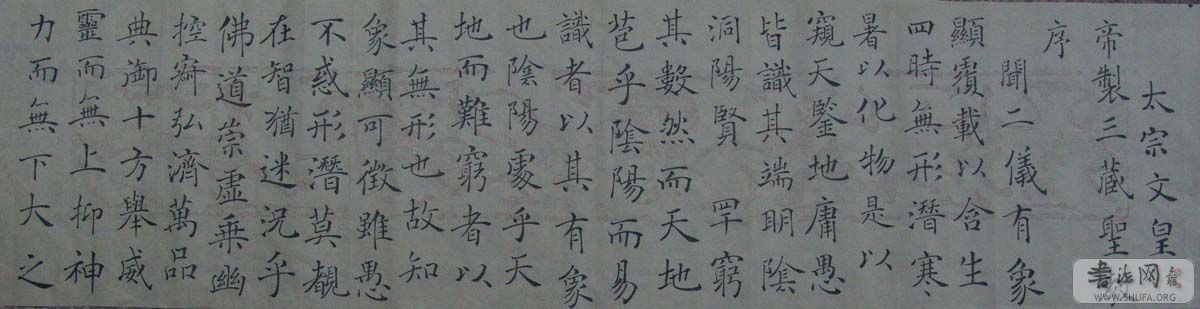 太宗文皇
帝製三藏聖
序
聞二儀有象
顯覆載以含生
四時無形潛寒
暑以化物是以
窺天鑒地庸愚
皆識其端明陰
洞陽賢罕窮
其數然而天地
苞乎陰陽而易
識者以其有象
也陰陽處乎天
地而難窮者以
其無形也故知
象顯可徵雖愚
不惑形潛莫覩
在智猶迷況乎
佛道崇虛乘幽
控寂弘濟萬品
典御十方舉威
靈而無上抑神
力而無下大之
书法网
WWW.SHUFA.ORG